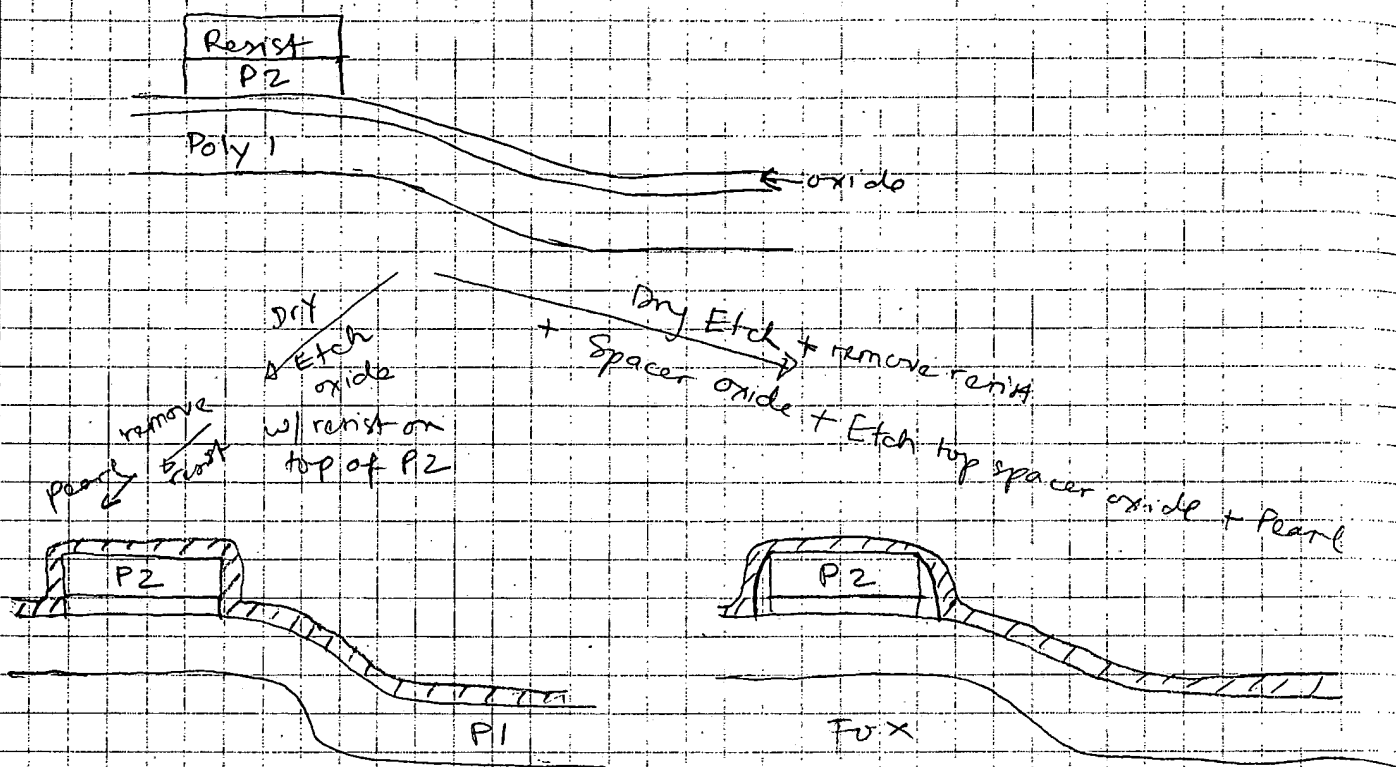 Resist
P2
Poly 1
← oxide
Dry
Etch
oxide
w/ resist on
top of P2
remove
resist
pearl
Dry Etch + remove resist
+ Spacer oxide + Etch top spacer oxide + Pearl
P2
P1
P2
Fox